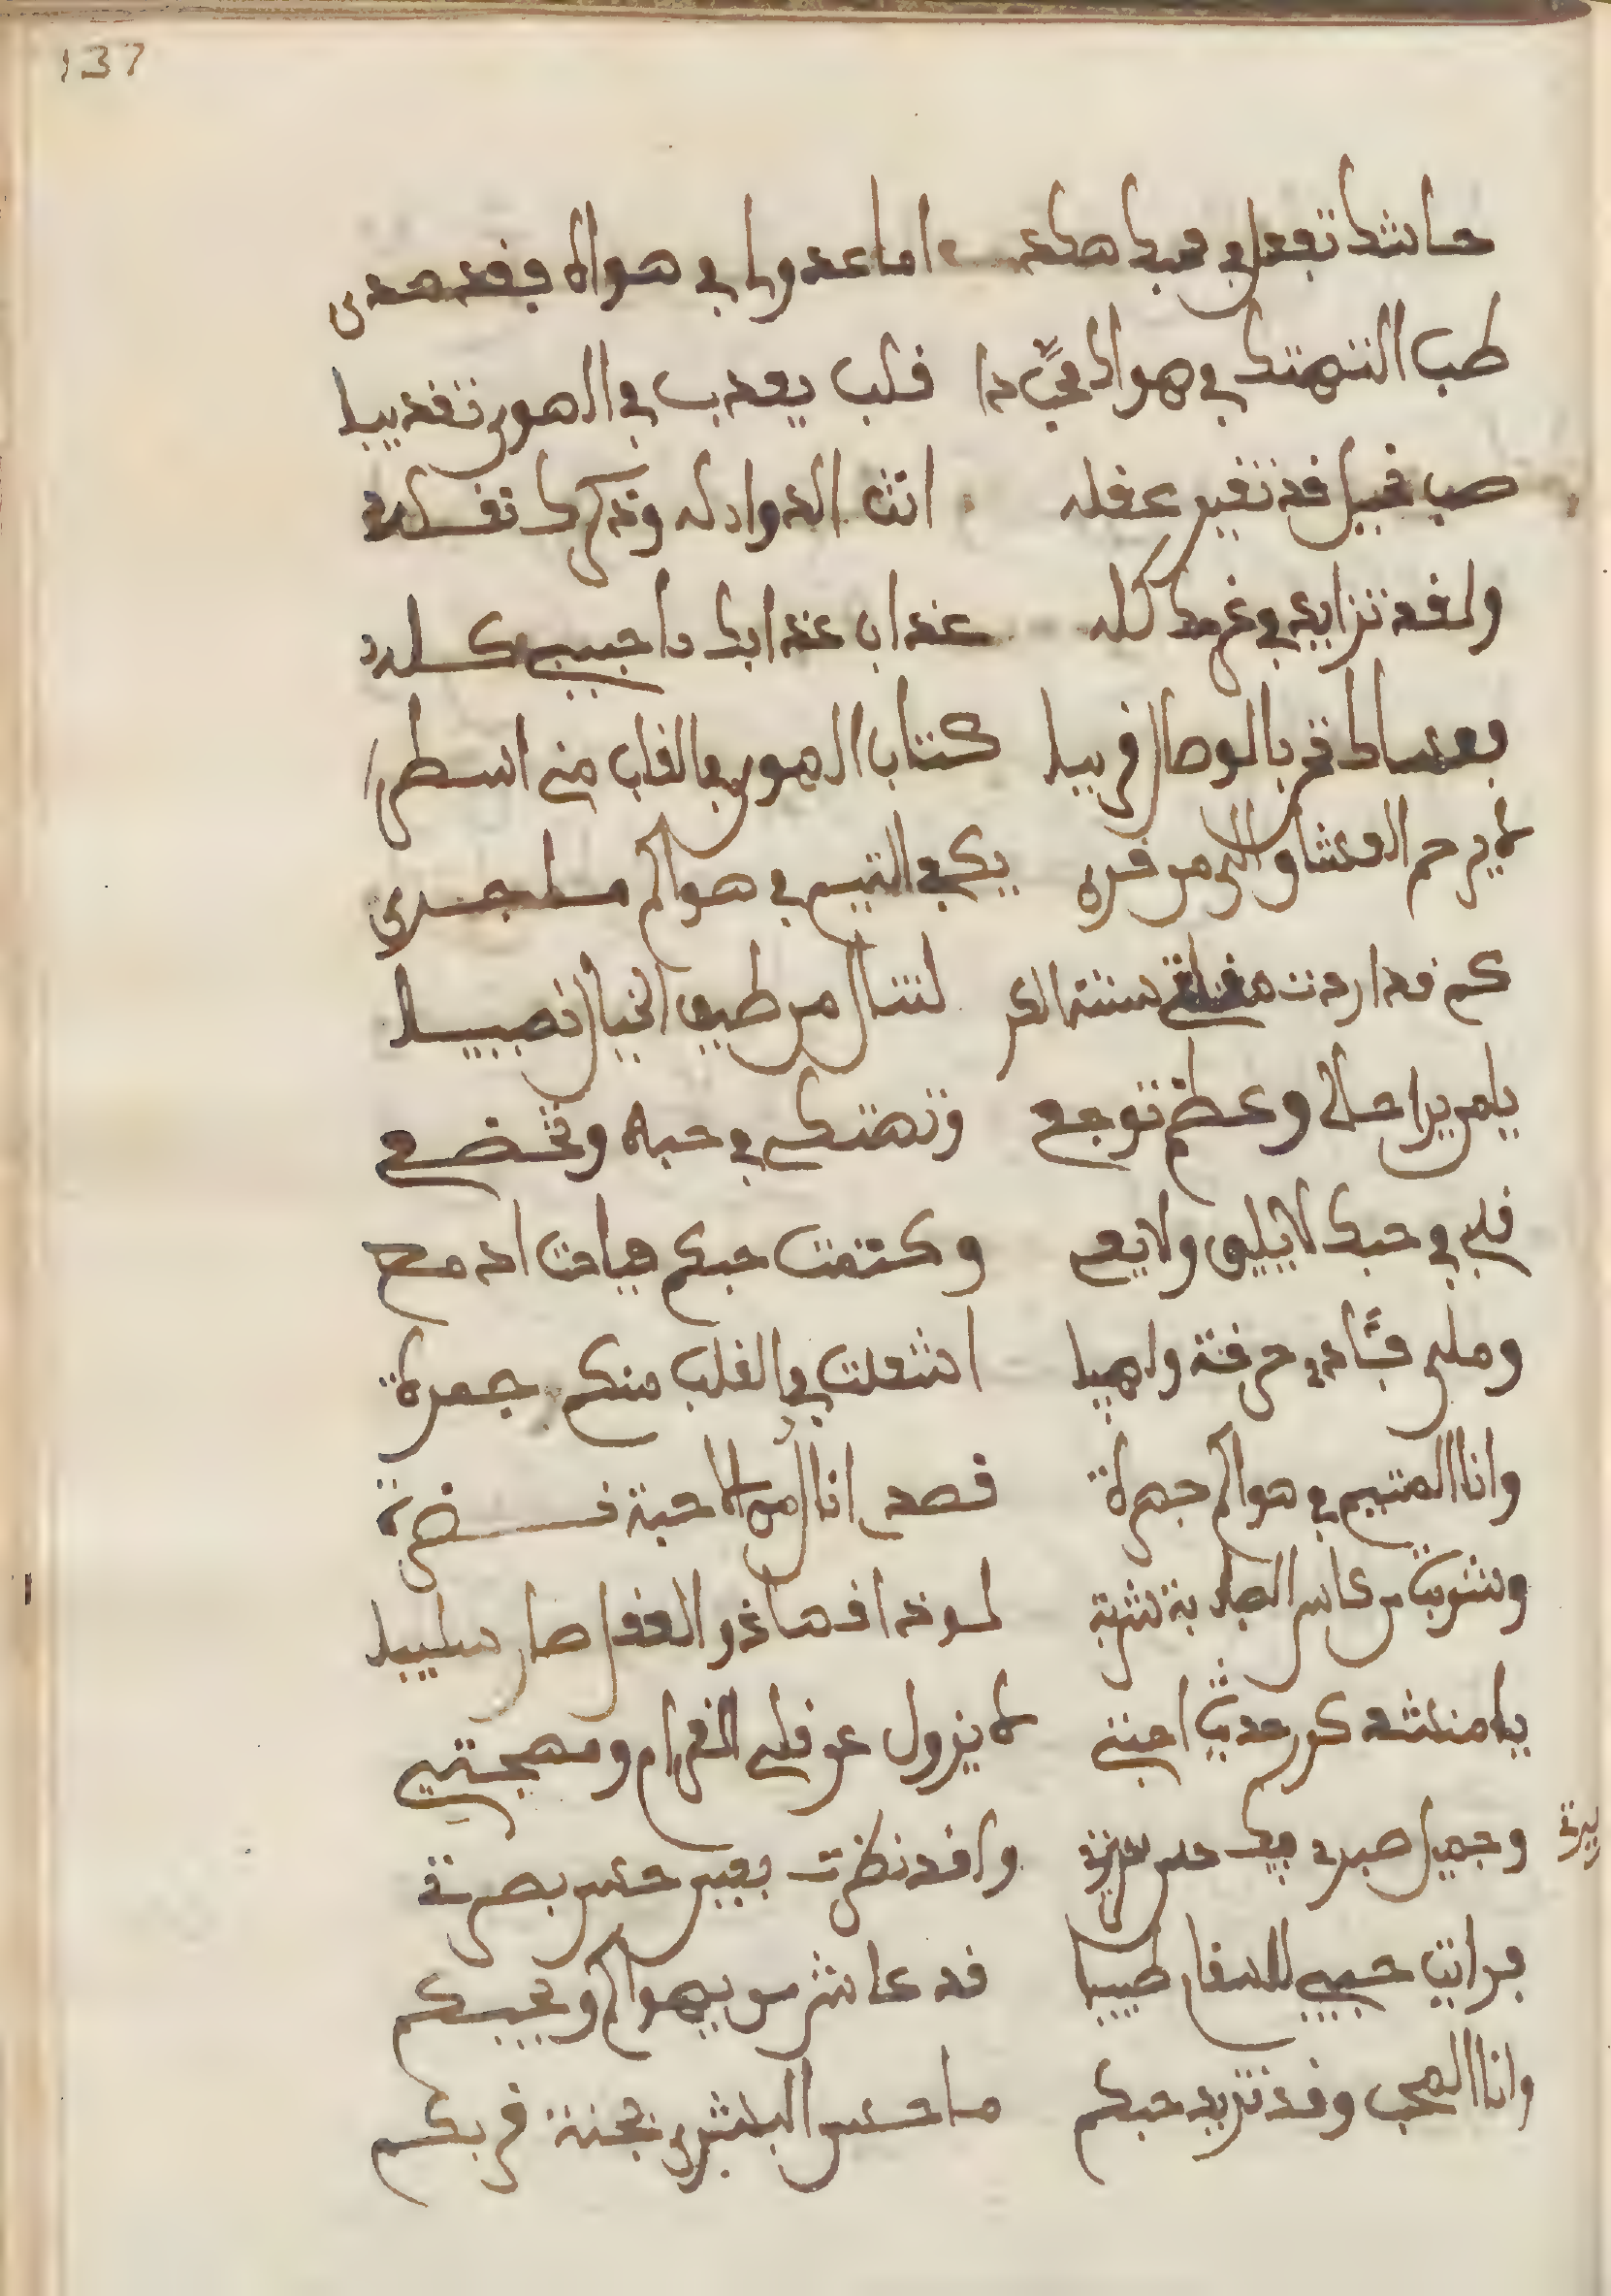 137
حاشاك تفعل في محبك هكذا اما عذولي في هواك فقد هدى
طب التهتك في هواك محبّذا قلب يعذب في الهوى تعذيبا
صب نحيل قد تغير عقله انت الدوا له وذكرك نقله
ولقد تزايد في غرامك كله عذاب عذابك يا حبيبي كله
فعساك تقرب بالوصال قريبا كتاب الهوى بالقلب مني اسطرا
لا يرحم العشاق الا من قرا يكفي المتيم في هواكم ما جرى
كم قد اردت مقلتي سنة الكرا لتنال من طيف الخيال نصيبا
يا من يرا حالي وعظم توجعي وتهتكي في حبه وتخضعي
قلبي في حبك لا يليق ولا يعي وكتمت حبكم هياحت ادمعي
وملى فؤادي حرقة ولهيبا اشعلت في القلب منكم جمرة
وانا المتيم في هواكم جهرة قصدي انال من المحبة نضرة
وشربت من كاس الصبابة شربة لو ذاقها ذو العقل صار سليبا
يا منشد كرر حديث احبتي لا يزول عن قلبي الغرام ومهجتي
وجميل صبري فيك حسن سريرتي ولقد نظرت بعين حسن بصرتي
يرتي
فرايت حبيبي للسقام طبيبا قد عاش من يهواكم ويحبكم
وانا المحب وقد تزيد حبكم ما احسن البشرى بجنة قربكم